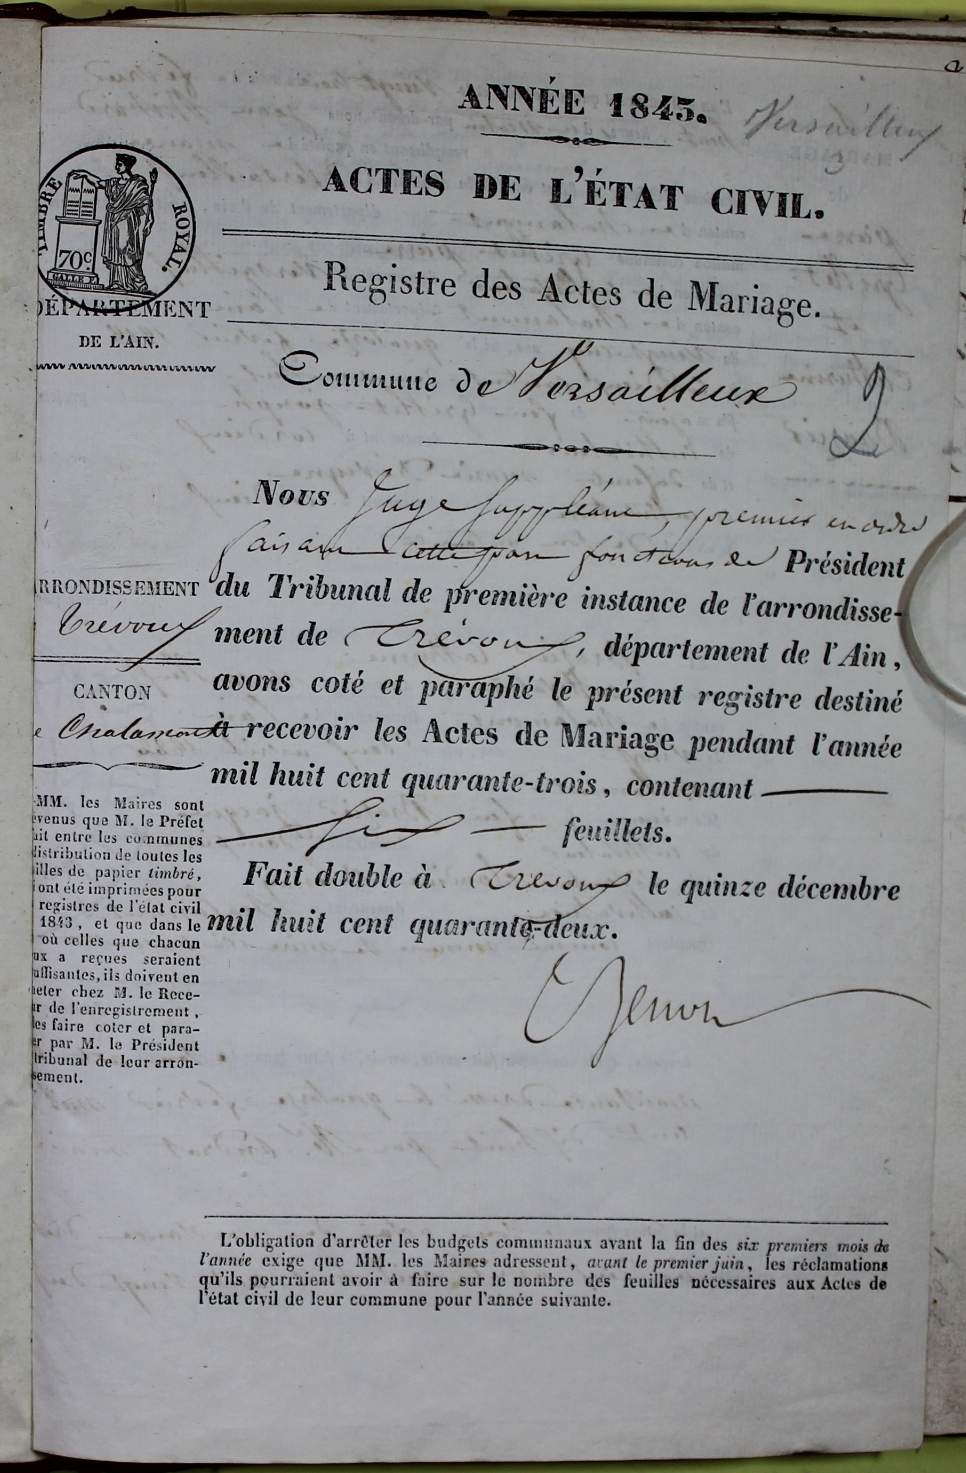 ANNÉE 1843.
Versailleux
ACTES DE L'ÉTAT CIVIL.
TIMBRE ROYAL.
70c
Registre des Actes de Mariage.
DÉPARTEMENT
DE L'AIN.
Commune de Versailleux
2
Nous Juge Suppléant, premier en ordre
faisant cette part fonctions de Président
du Tribunal de première instance de l'arrondisse-
ment de Trévoux, département de l'Ain,
avons coté et paraphé le présent registre destiné
à recevoir les Actes de Mariage pendant l'année
mil huit cent quarante-trois, contenant
Six feuillets.
Fait double à Trévoux le quinze décembre
mil huit cent quarante-deux.
ARRONDISSEMENT
Trévoux
CANTON
e Chalamont
MM. les Maires sont
évenus que M. le Préfet
ait entre les communes
distribution de toutes les
illes de papier timbré,
i ont été imprimées pour
registres de l'état civil
1843, et que dans le
où celles que chacun
ux a reçues seraient
uffisantes, ils doivent en
heter chez M. le Rece-
ur de l'enregistrement,
les faire coter et para-
er par M. le Président
tribunal de leur arron-
sement.
L'obligation d'arrêter les budgets communaux avant la fin des six premiers mois de
l'année exige que MM. les Maires adressent, avant le premier juin, les réclamations
qu'ils pourraient avoir à faire sur le nombre des feuilles nécessaires aux Actes de
l'état civil de leur commune pour l'année suivante.